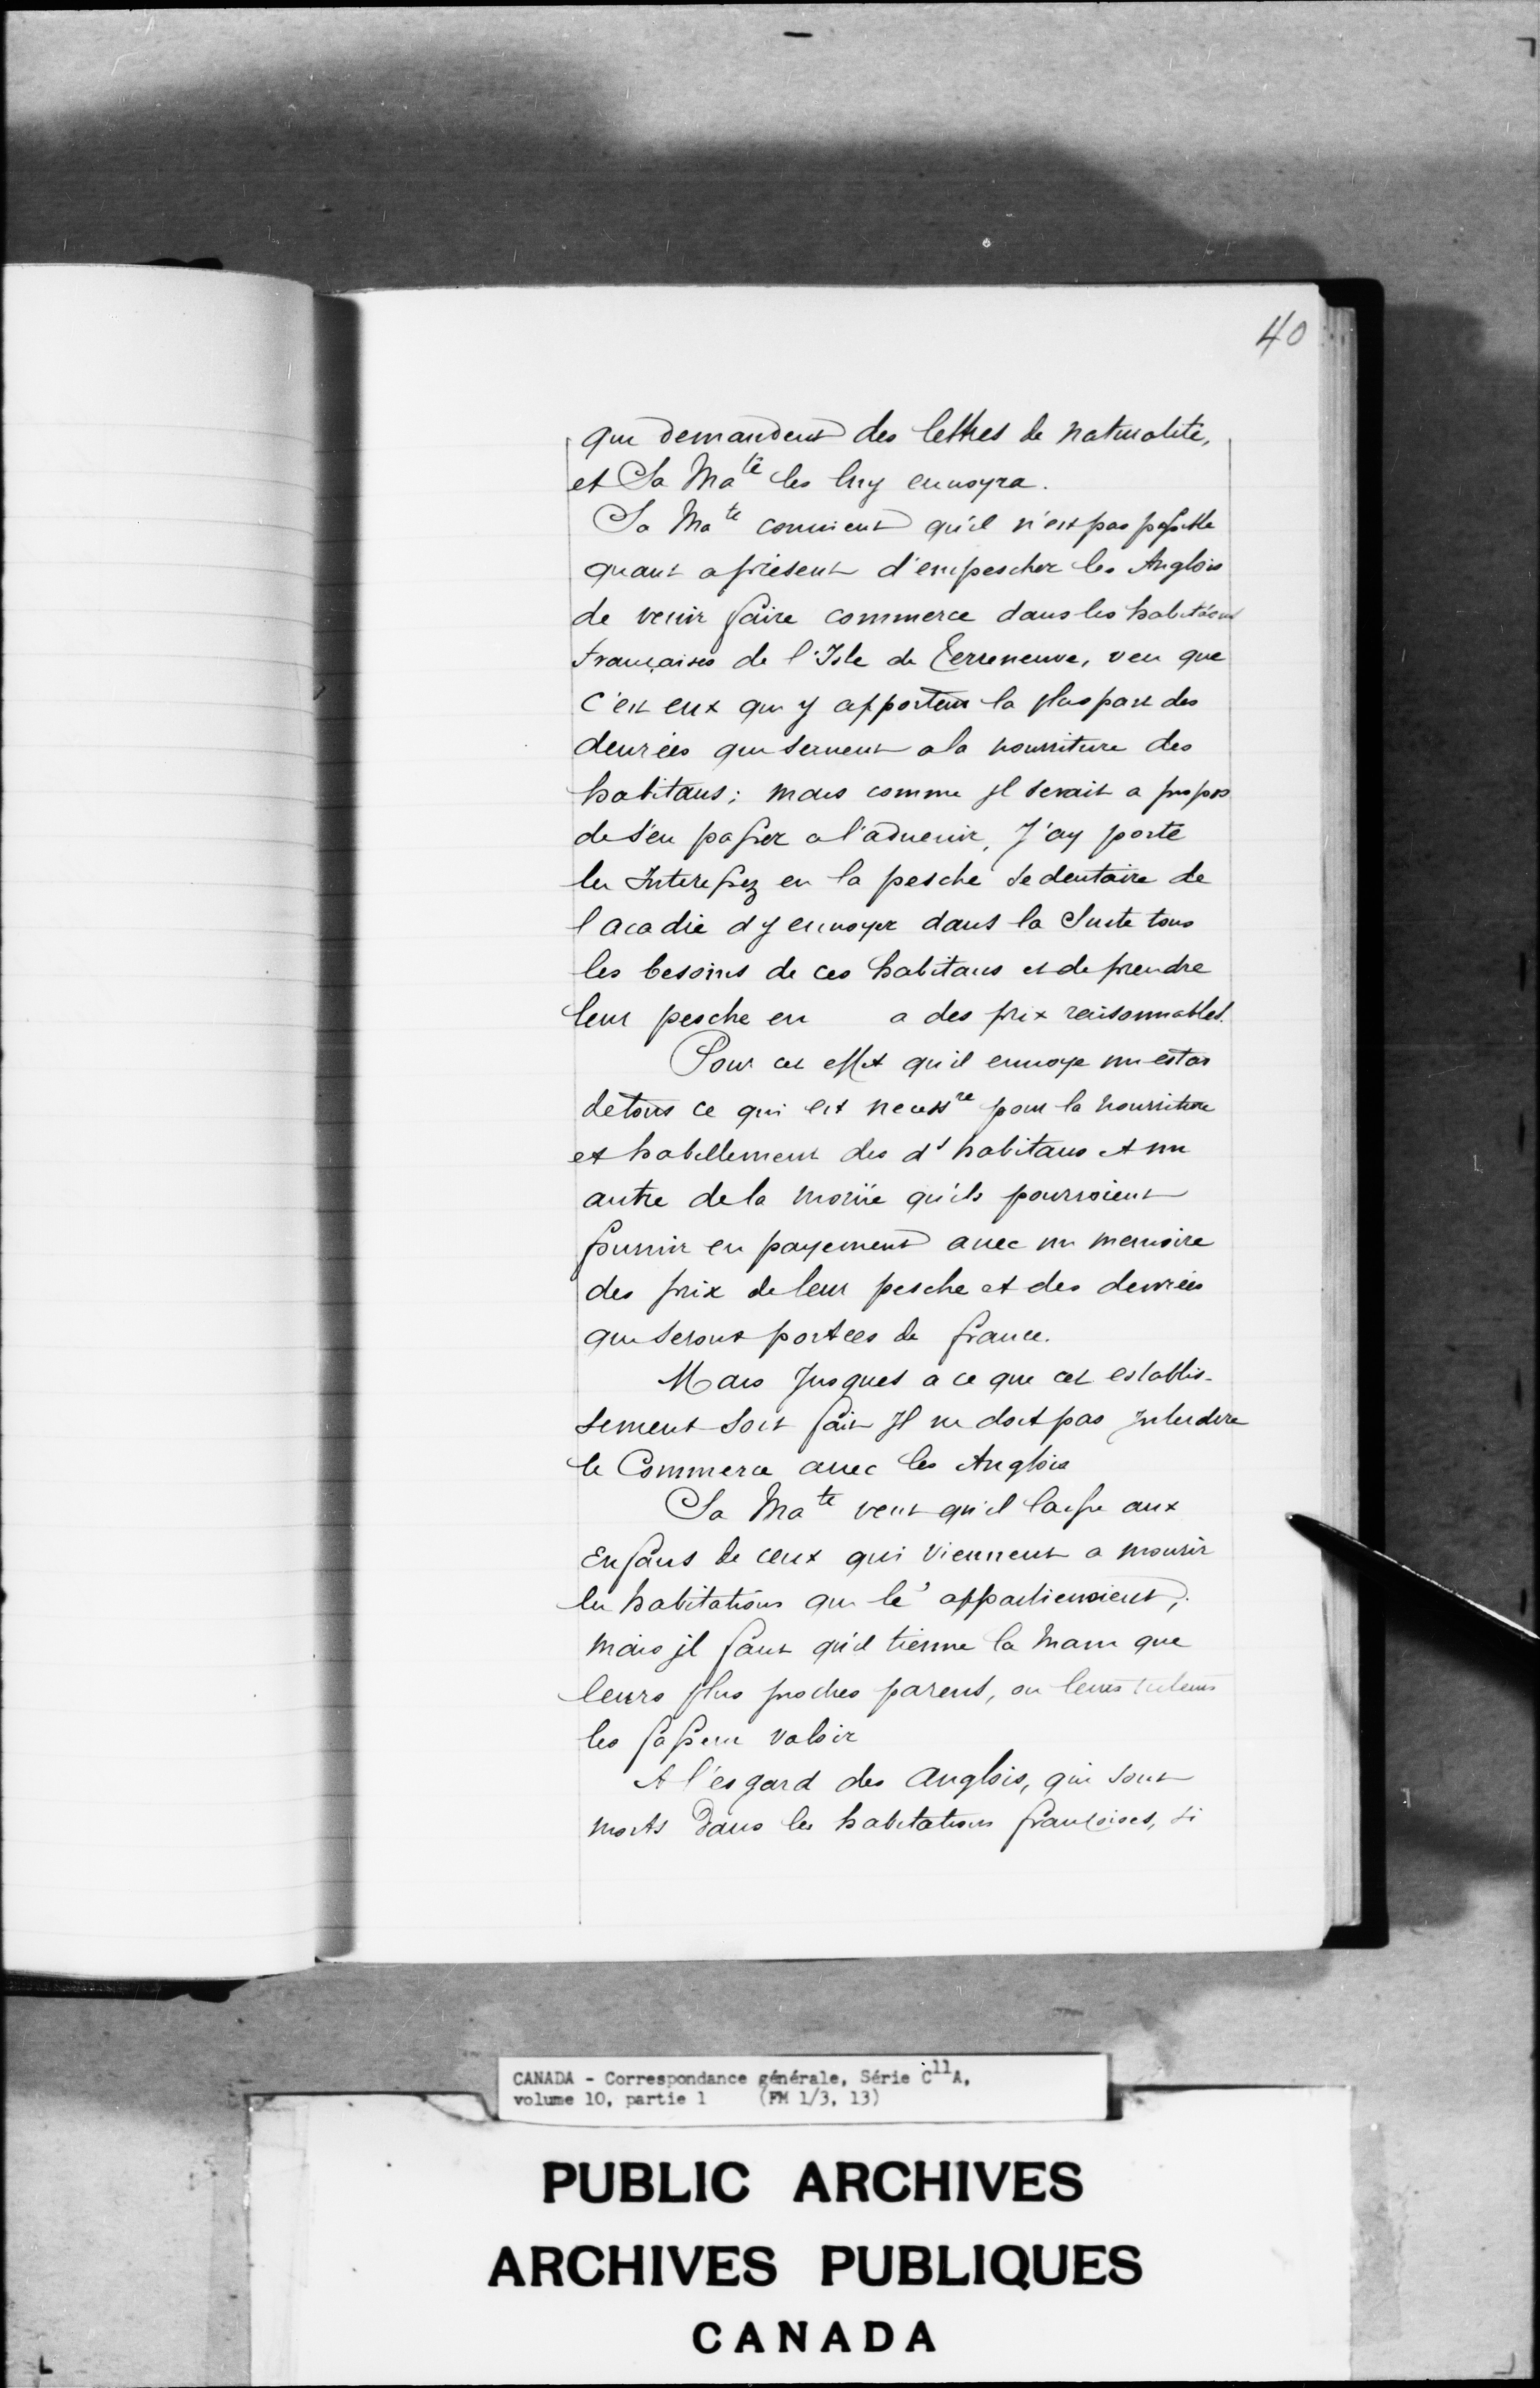 40
qui demandent des lettres de naturalité,
et Sa Ma^té les luy enuoyra.
Sa Ma^te conuient qu'il n'est pas possible
quant a présent d'empescher les Anglois
de venir faire commerce dans les habitaons
françaises de l'Isle de Terreneuve, veu que
c'est eux qui y apportent la pluspart des
denrées qui seruent a la nourriture des
habitans; mais comme il serait a propos
de s'en passer a l'aduenir, J'ay porté
les Interessez en la pesche sedentaire de
l acadie d y enuoyer dans la Suite tous
les besoins de ces habitans et de prendre
leur pesche en a des prix raisonnables.
Pour cet effet qu'il enuoye un estat
de tous ce qui est necess^re pour la nourriture
et habillement des d^s habitans et un
autre de la moruë qu'ils pourroient
fournir en payement auec un memoire
des prix de leur pesche et des denrées
qui seront portées de france.
Mais Jusques a ce que cet establis-
sement soit fait Il ne doit pas Interdire
le Commerce auec les Anglois
Sa Ma^te veut qu'il laisse aux
Enfans de ceux qui viennent a mourir
les habitations qui le^r appartiennoient,
mais il faut qu'il tienne la main que
leurs plus proches parens, ou leurs tuteurs
les fassent valoir
A l'esgard des anglois, qui sont
morts dans les habitations françoises, si
CANADA - Correspondance générale, Série C^11 A,
volume 10, partie 1 (FM 1/3, 13)
PUBLIC ARCHIVES
ARCHIVES PUBLIQUES
CANADA